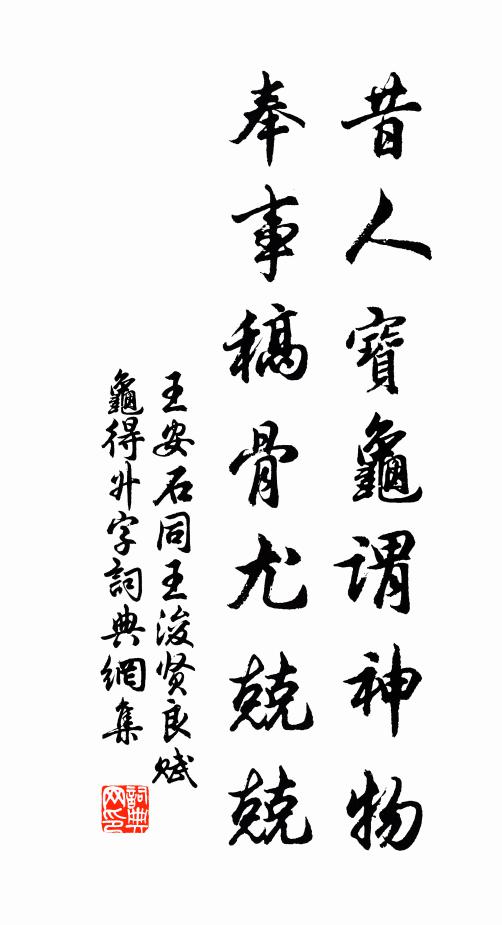 昔人寶龜謂神物
奉事槁骨尤兢兢
王安石同王浚贤良賦
龜得升字詞典網集
詞典网印